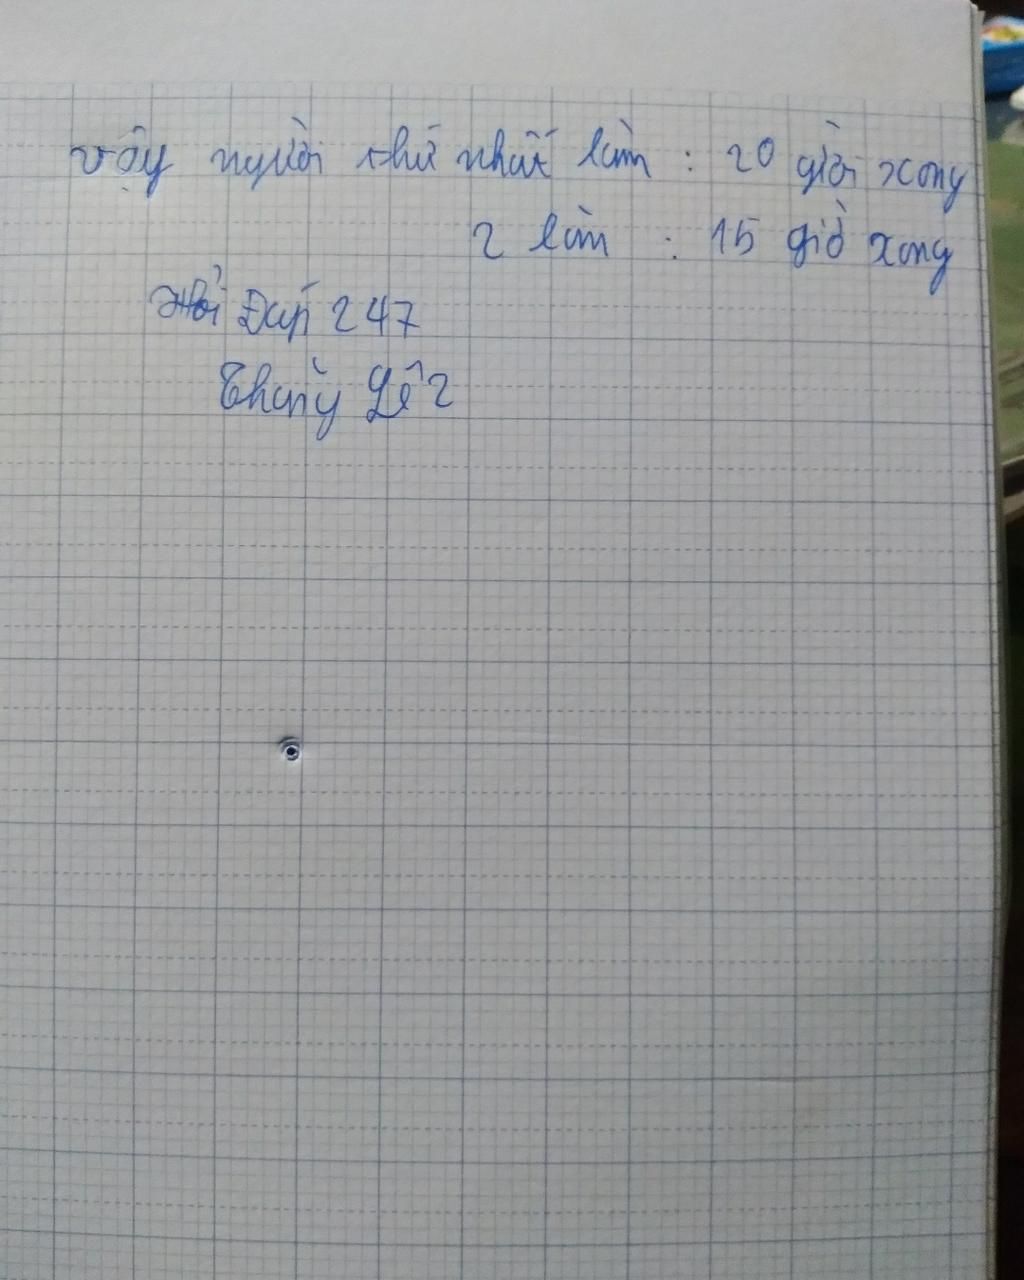 Vậy người thứ nhất làm : 20 giờ xong
2 làm : 15 giờ xong
Hỏi Đáp 247
Thủy Lê 2